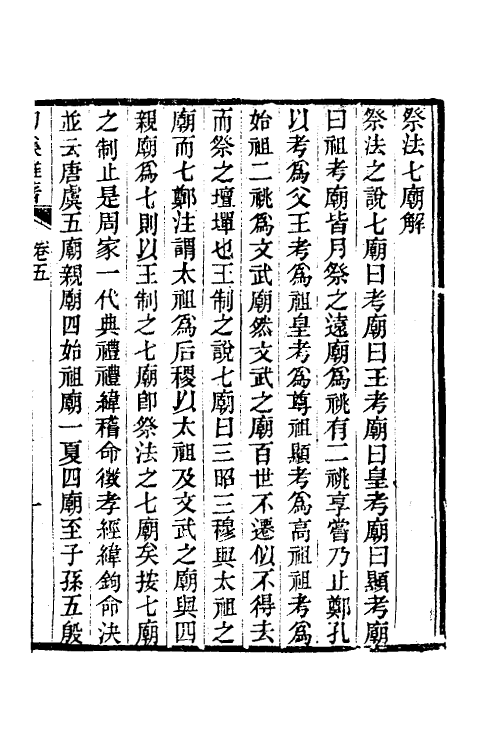 祭法七廟解
祭法之說七廟曰考廟曰王考廟曰皇考廟曰顯考廟
曰祖考廟皆月祭之遠廟為祧有二祧享嘗乃止鄭孔
以考為父王考為祖皇考為尊祖顯考為高祖祖考為
始祖二祧為文武廟然文武之廟百世不遷似不得去
而祭之壇墠也王制之說七廟曰三昭三穆與太祖之
廟而七鄭注謂太祖為后稷以太祖及文武之廟與四
親廟為七則以王制之七廟卽祭法之七廟矣按七廟
之制止是周家一代典禮禮緯稽命徵孝經緯鉤命決
並云唐虞五廟親廟四始祖廟一夏四廟至子孫五殷
卷五
一